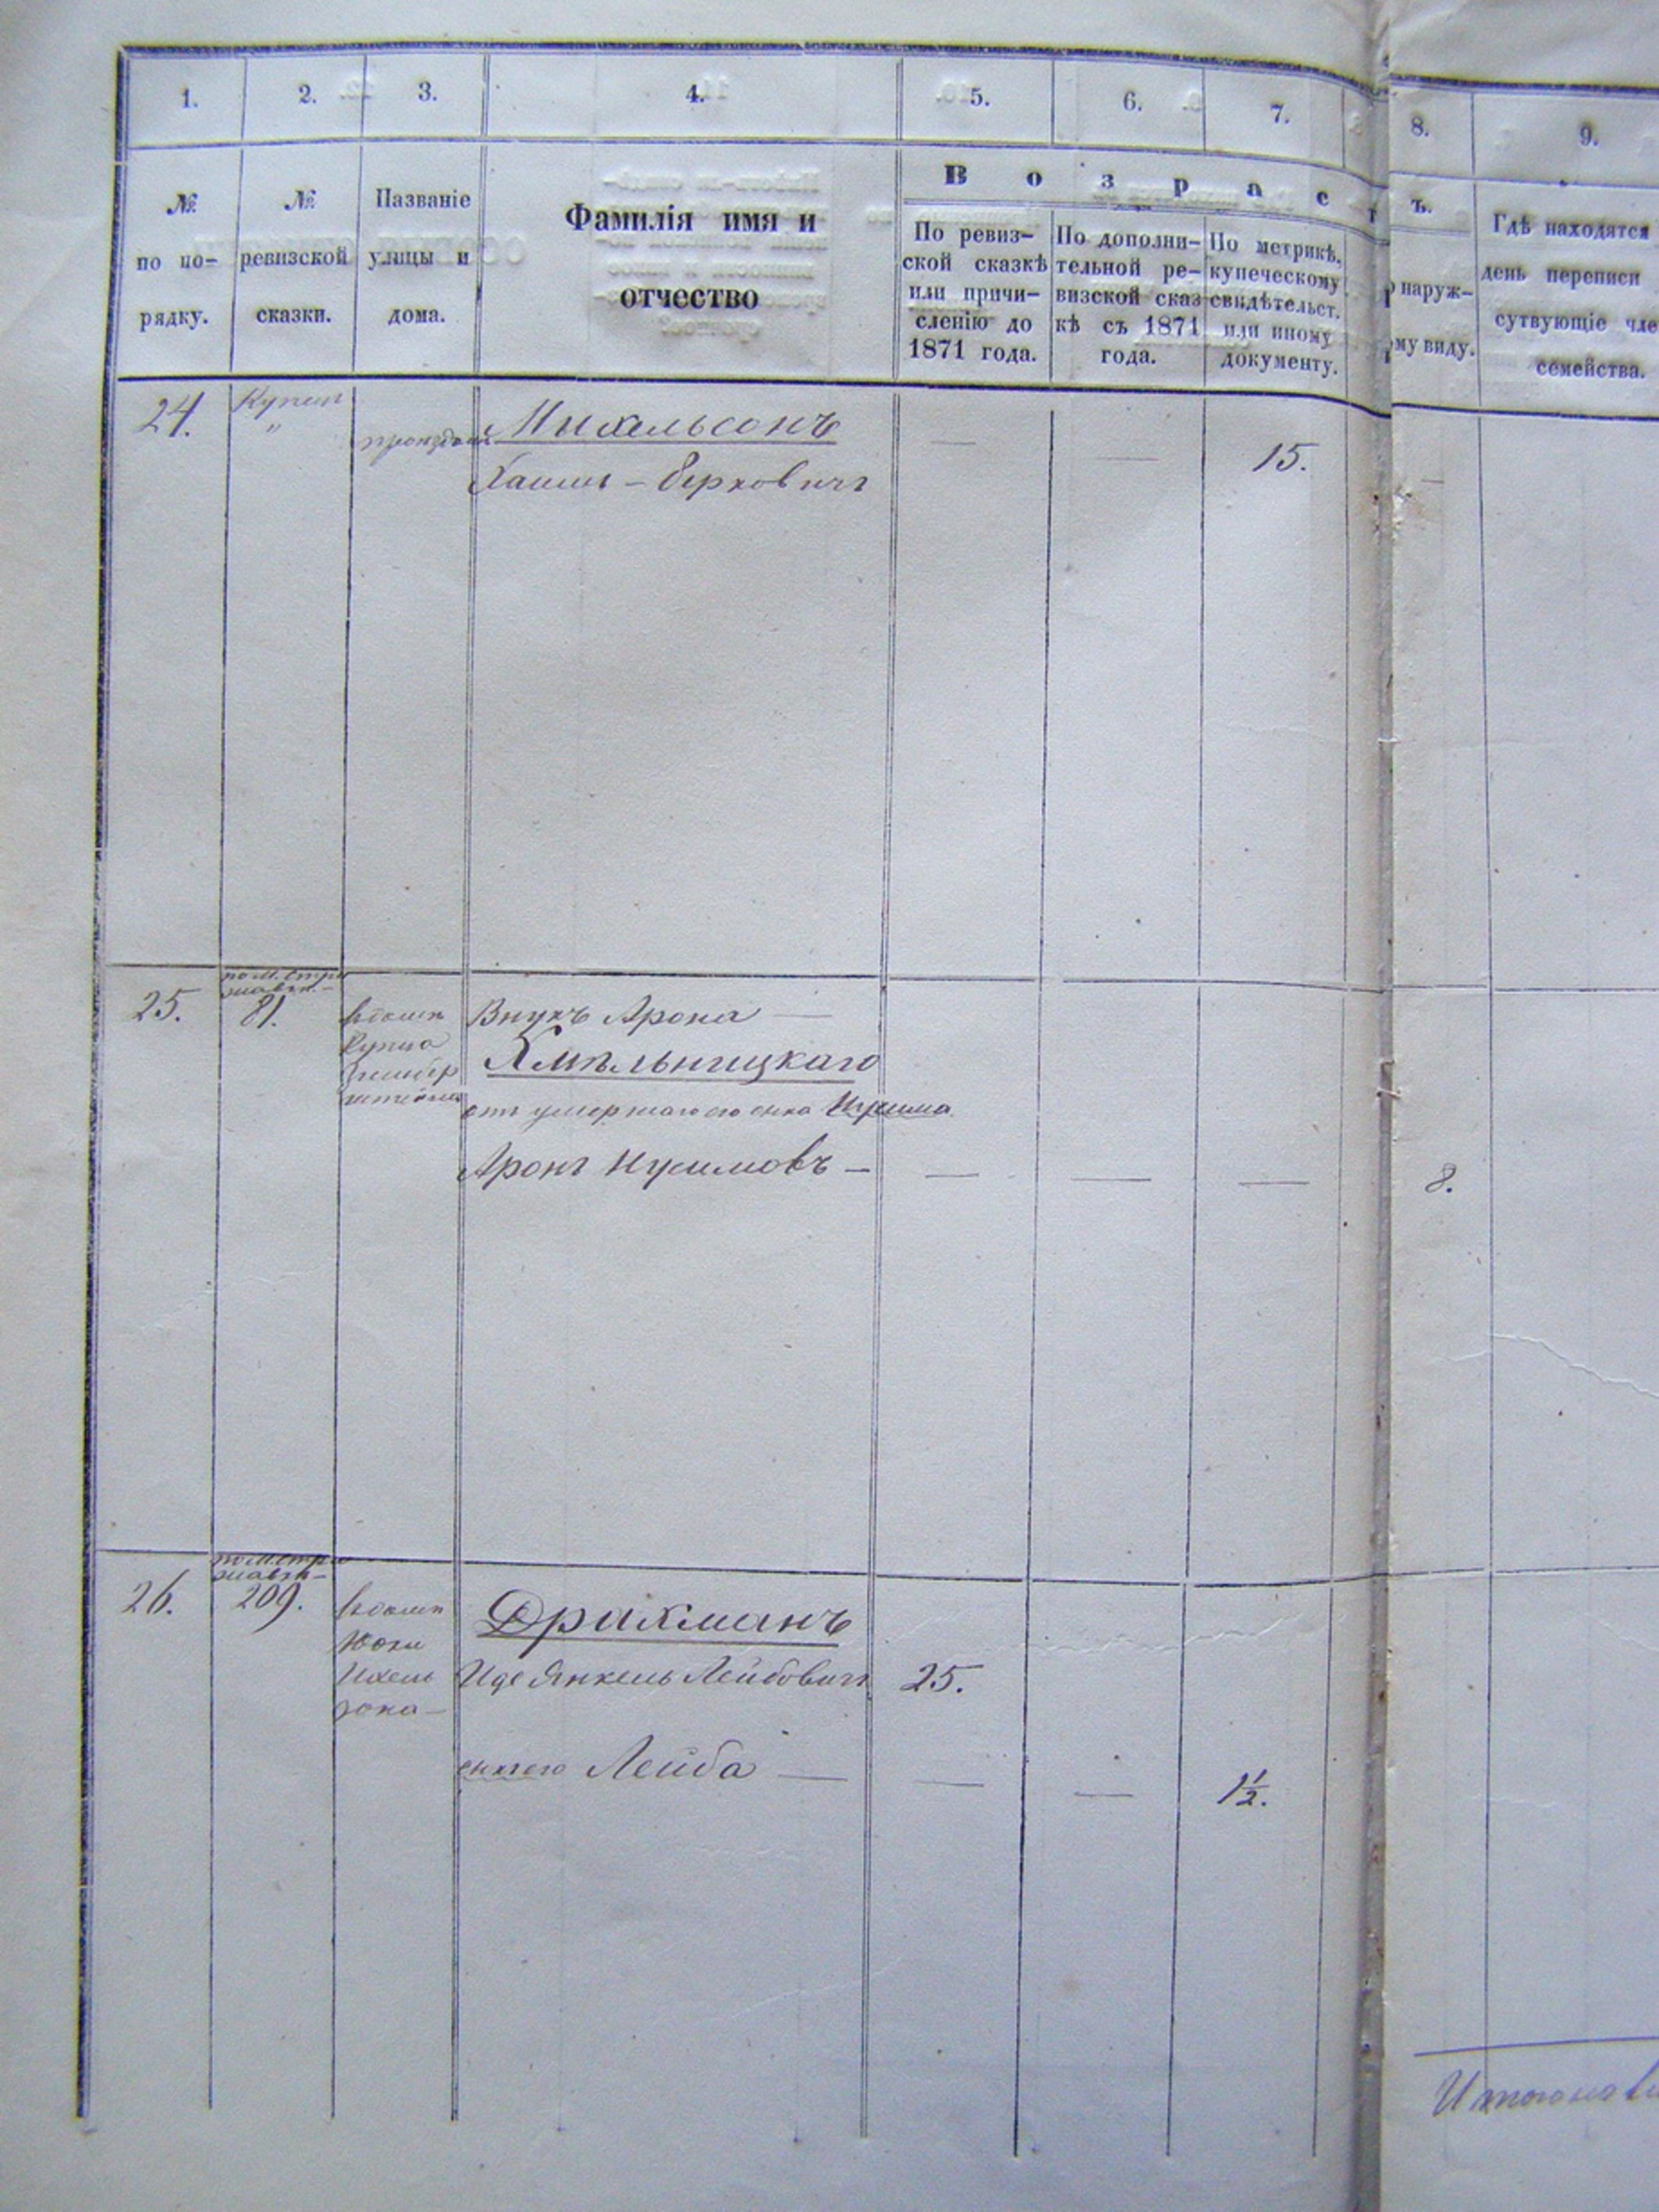 1. 2. 3. 4. 5. 6. 7. 8. 9.
№ по по-
рядку.
№
ревизской
сказки.
Названіе
улицы и
дома.
Фамилія имя и
отчество
Возрастъ.
По ревиз-
ской сказкѣ
или причи-
сленію до
1871 года.
По дополни-
тельной ре-
визской сказ-
кѣ съ 1871
года.
По метрикѣ,
купеческому
свидѣтельст.
или иному
документу.
наруж-
ому виду.
Гдѣ находятся
день переписи
сутвующіе чле
семейства.
24. Купец Михельсонъ — — 15. —
Хаимъ - Берковичъ
25. 81. Внукъ Арона —
въ домѣ
Купца
Хмѣльницкаго
отъ умершаго его сына Нусима
Аронъ Нусимовъ — — — — 8.
26. 209. Драхманъ
въ домѣ
Иде Янкель Лейбовичъ 25.
сынъ его Лейба — — — 1½.